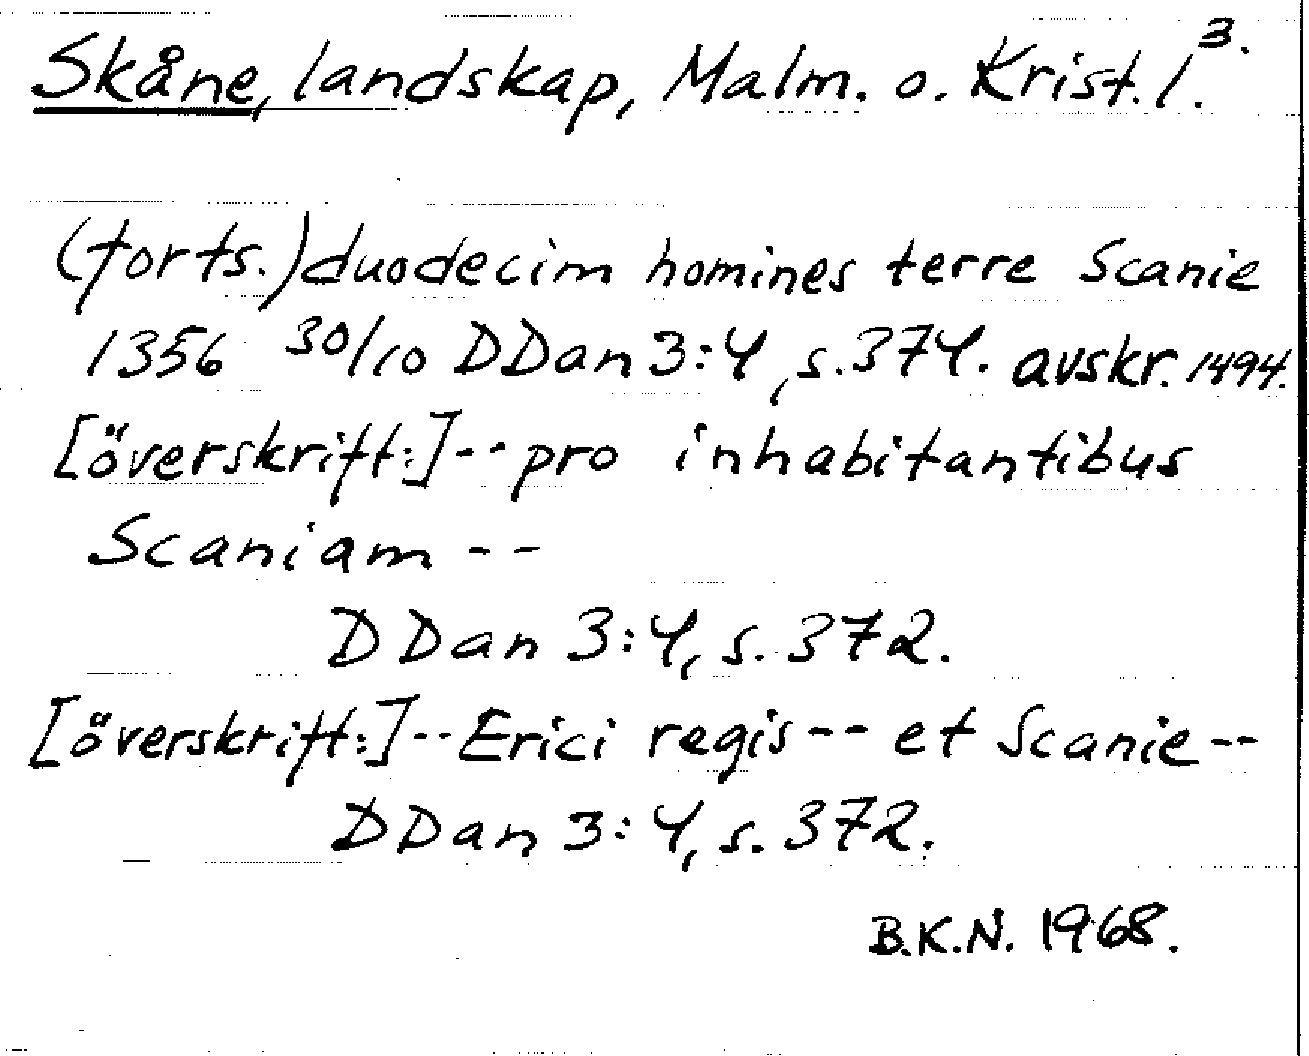 Skåne, landskap, Malm. o. Krist. l. 3.
(forts.) duodecim homines terre Scanie
1356 30/10 DDan 3:4, s. 374. avskr. 1494.
[överskrift:] -- pro inhabitantibus
Scaniam --
DDan 3:4, s. 372.
[överskrift:] -- Erici regis -- et Scanie --
DDan 3:4, s. 372.
B.K.N. 1968.